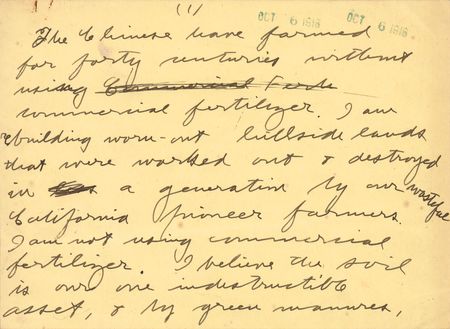 (1)
OCT 6 1916 OCT 6 1916
The Chinese have farmed
for forty centuries without
using Commercial Ferti
commercial fertilizer. I am
rebuilding worn-out hillside lands
that were worked out & destroyed
in a generation by our wasteful
California pioneer farmers.
I am not using commercial
fertilizer. I believe the soil
is our one indestructible
asset, & by green manures,